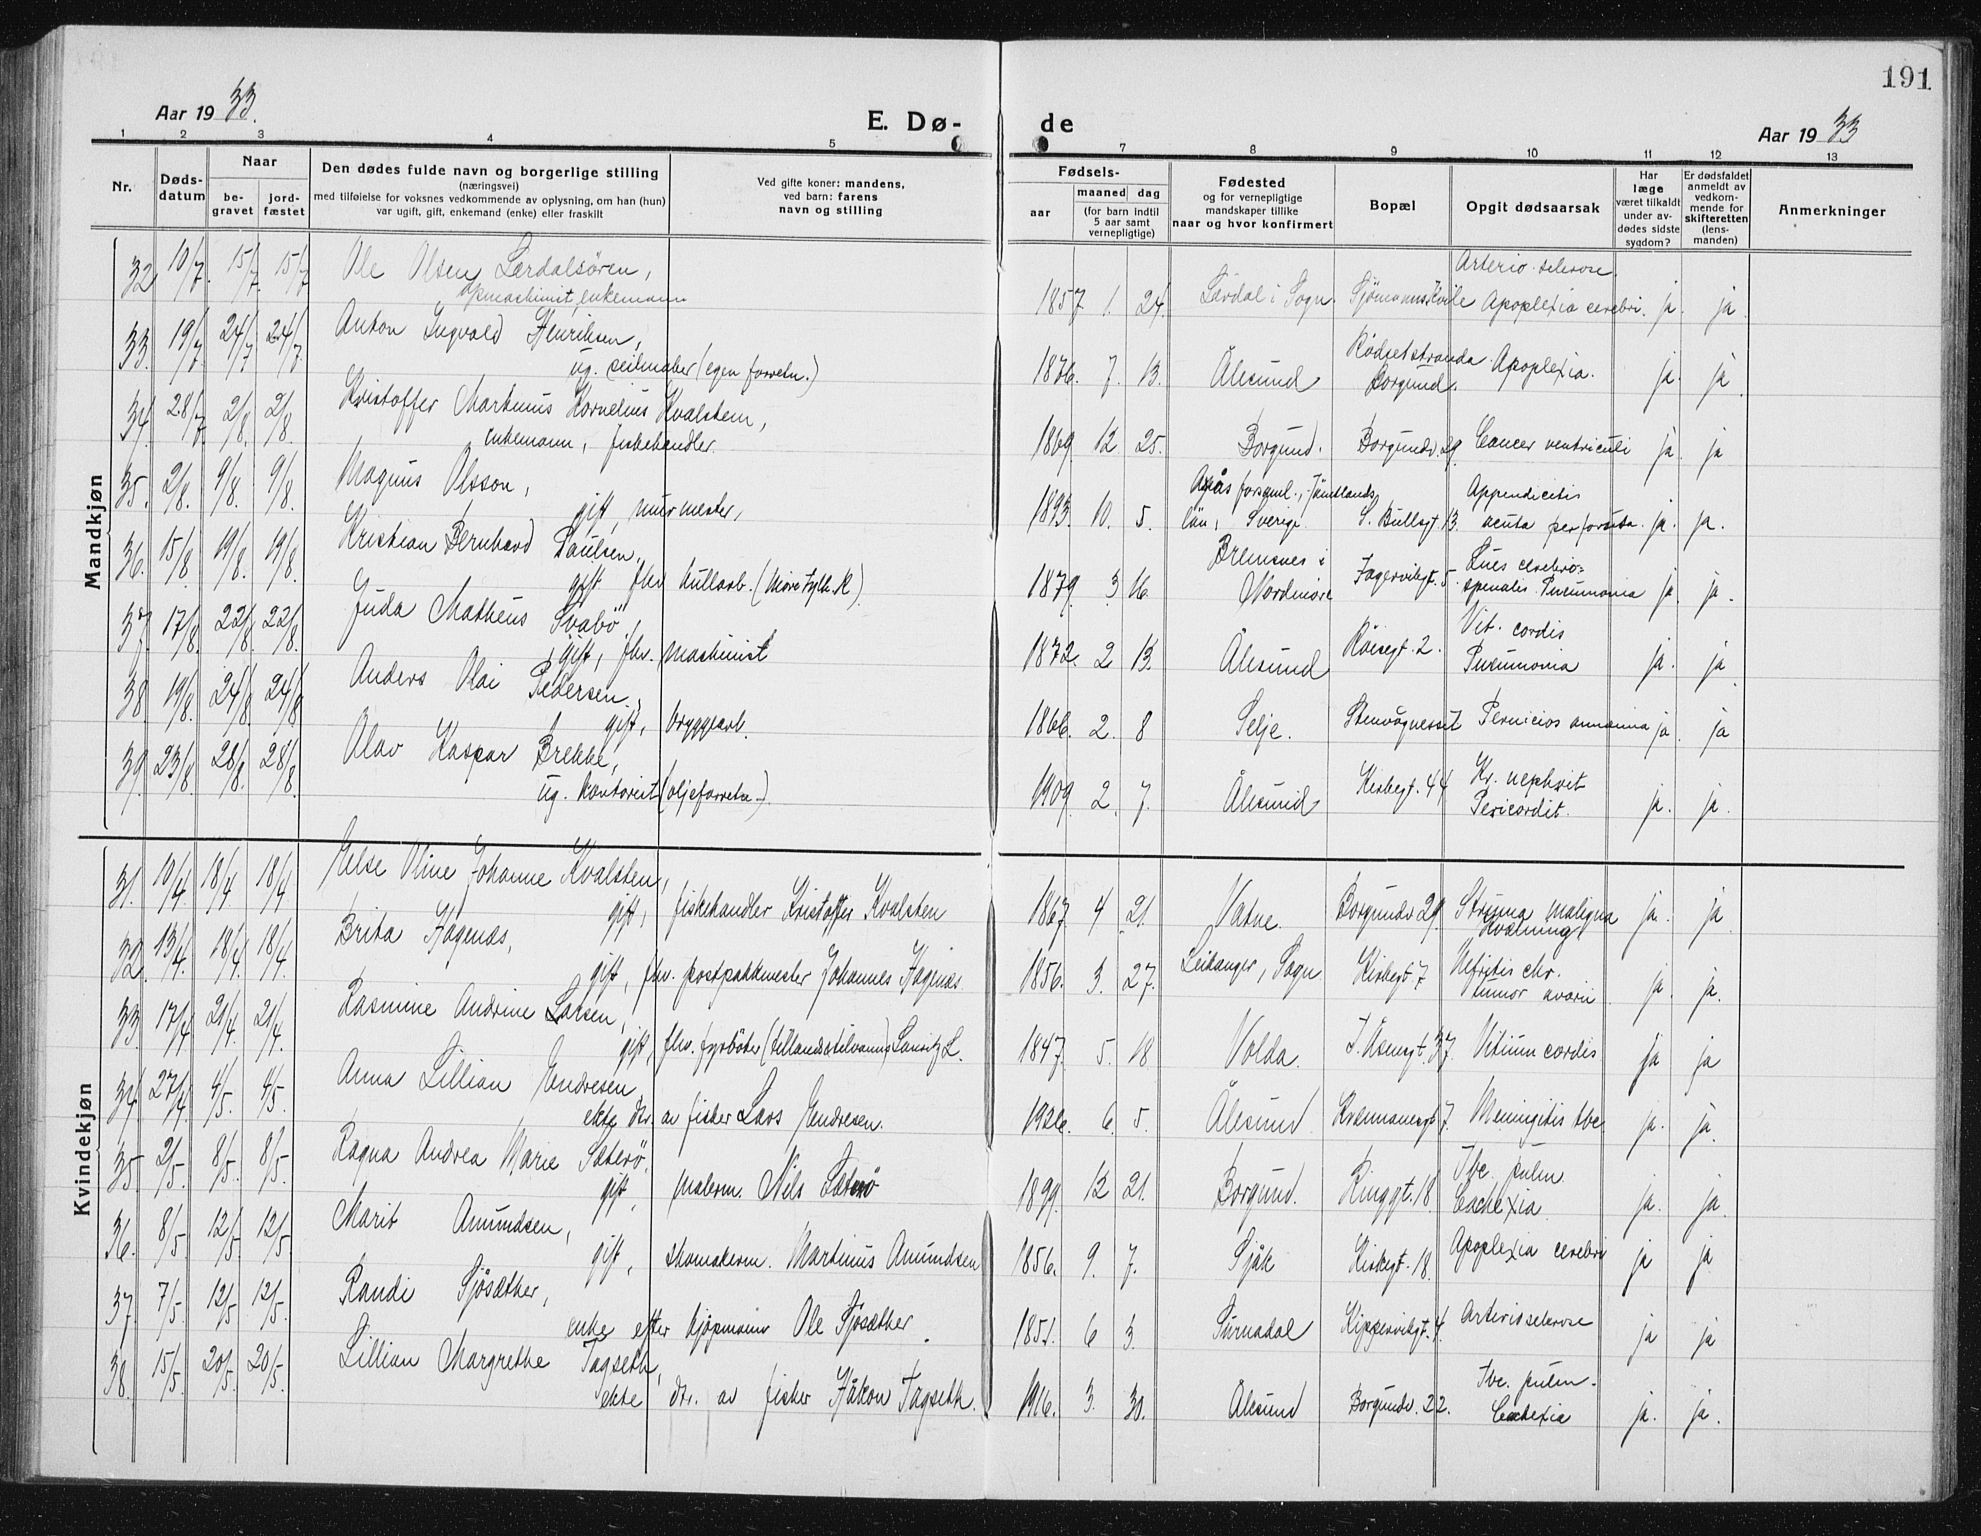 191
Aar 1933.
E. Dø-
de
Aar 1933
1 2 3 4 5 7 8 9 10 11 12 13
Nr.
Døds-datum
Naar
be-gravet
jord-fæstet
Den dødes fulde navn og borgerlige stilling
(næringsvei)
med tilføielse for voksnes vedkommende av oplysning, om han (hun)
var ugift, gift, enkemand (enke) eller fraskilt
Ved gifte koner: mandens,
ved barn: farens
navn og stilling
Fødsels-
aar
maaned dag
(for barn indtil
5 aar samt
vernepligtige)
Fødested
og for vernepligtige
mandskaper tillike
naar og hvor konfirmert
Bopæl
Opgit dødsaarsak
Har
læge
været tilkaldt
under av-
dødes sidste
sygdom?
Er dødsfaldet
anmeldt av
vedkom-
mende for
skifteretten
(lens-
manden)
Anmerkninger
Mandkjøn
32 10/7. 15/7. 15/7 Ole Olsen Lærdalsören,
enkemann
1857 1. 24. Lärdal i Sogn Sjömannskvile Arterio-sclerose
Apoplexia cerebri. ja. ja
33. 19/7. 24/7 24/7 Anton Ingvald Henriksen,
ug. seilmaker (egen forretn.)
1876. 7. 13. Ålesund Rödsetstranda Borgund. Apoplexia. ja. ja
34. 28/7 2/8. 2/8. Kristoffer Martinus Kornelius Kvalsten,
enkemann, fiskehandler.
1869 12 25. Borgund. Borgundv. 29. Cancer ventriculi ja. ja
35. 2/8. 9/8. 9/8. Magnus Olsson,
gift, murmester,
1893. 10. 5. forsaml., Jämtlands
län, Sverige. S. Bullsgt. 13. Appendicitis
acuta perforata. ja. ja.
36. 15/8. 19/8. 19/8. Kristian Bernhard Paulsen,
gift, fhv. kullarb. (Möre fylke. R)
1879. 3 16. Bremsnes i
Nordmöre Fagervikgt. 5. Lues cerebro-
spinalis. Pneumonia ja. ja.
37. 17/8. 22/8. 22/8. Juda Matheus Svabö,
gift, fhv. maskinist
1872. 2 13. Ålesund Röisegt. 2. Vit. cordis
Pneumonia ja. ja
38. 19/8. 24/8 24/8 Anders Olai Pedersen,
gift, bryggearb.
1866. 2. 8 Selje. Stenvågnesset Pernicios annæmia ja. ja
39. 23/8. 28/8. 28/8. Olav Kaspar Brekke,
ug. kontorist (oljeforretn.)
1909. 2. 7. Ålesund Kirkegt. 44 Kr. nephrit
Pericordit. ja. ja.
Kvindekjøn
31. 10/4. 18/4 18/4 Else Oline Johanne Kvalsten,
gift, fiskehandler Kristoffer Kvalsten
1867 4 21. Vatne. Borgundv. 29. Struma maligna
Kvælning ja. ja
32. 13/4. 18/4. 18/4. Brita Hagenæs,
gift, fhv. postpakkmester Johannes Hagenæs
1856. 3. 27. Leikanger, Sogn Kirkegt. 7 Nefritis chr.
tumor ovarii ja. ja.
33. 17/4 21/4. 21/4. Rasmine Andrine Larsen,
gift, fhv. fyrböter
1847. 5. 18 Volda. I. Åsensgt. 37. Vitium cordis ja ja
34. 27/4 4/5. 4/5. Anna Lillian Endresen
ekte dtr. av fisker Lars Endresen.
1926. 6. 5. Ålesund 7. Meningitis tbc. ja. ja.
35. 2/5. 8/5. 8/5. Ragna Andrea Marie Sæterö,
gift, malerm. Nils Sæterö
1899. 12 21. Borgund. Ringgt. 18. Tbc. pulm
Cachexia ja. ja.
36. 8/5. 12/5. 12/5. Marit Amundsen,
gift, skomakerm. Martinus Amundsen
1856. 9. 7. Sjåk Kirkegt. 18. Apoplexia cerebri ja ja
37. 7/5. 12/5 12/5. Randi Sjösæther,
enke efter kjøpmann Ole Sjösæther.
1851. 6 3. Surnadal Kippervikgt. 4. Arteriosclerose ja ja
38. 15/5. 20/5 20/5. Lillian Margrethe Tagseth,
ekte dtr. av fisker Håkon Tagseth.
1916. 3. 30. Ålesund Borgundv. 22. Tbc. pulm.
Cachexia ja. ja.